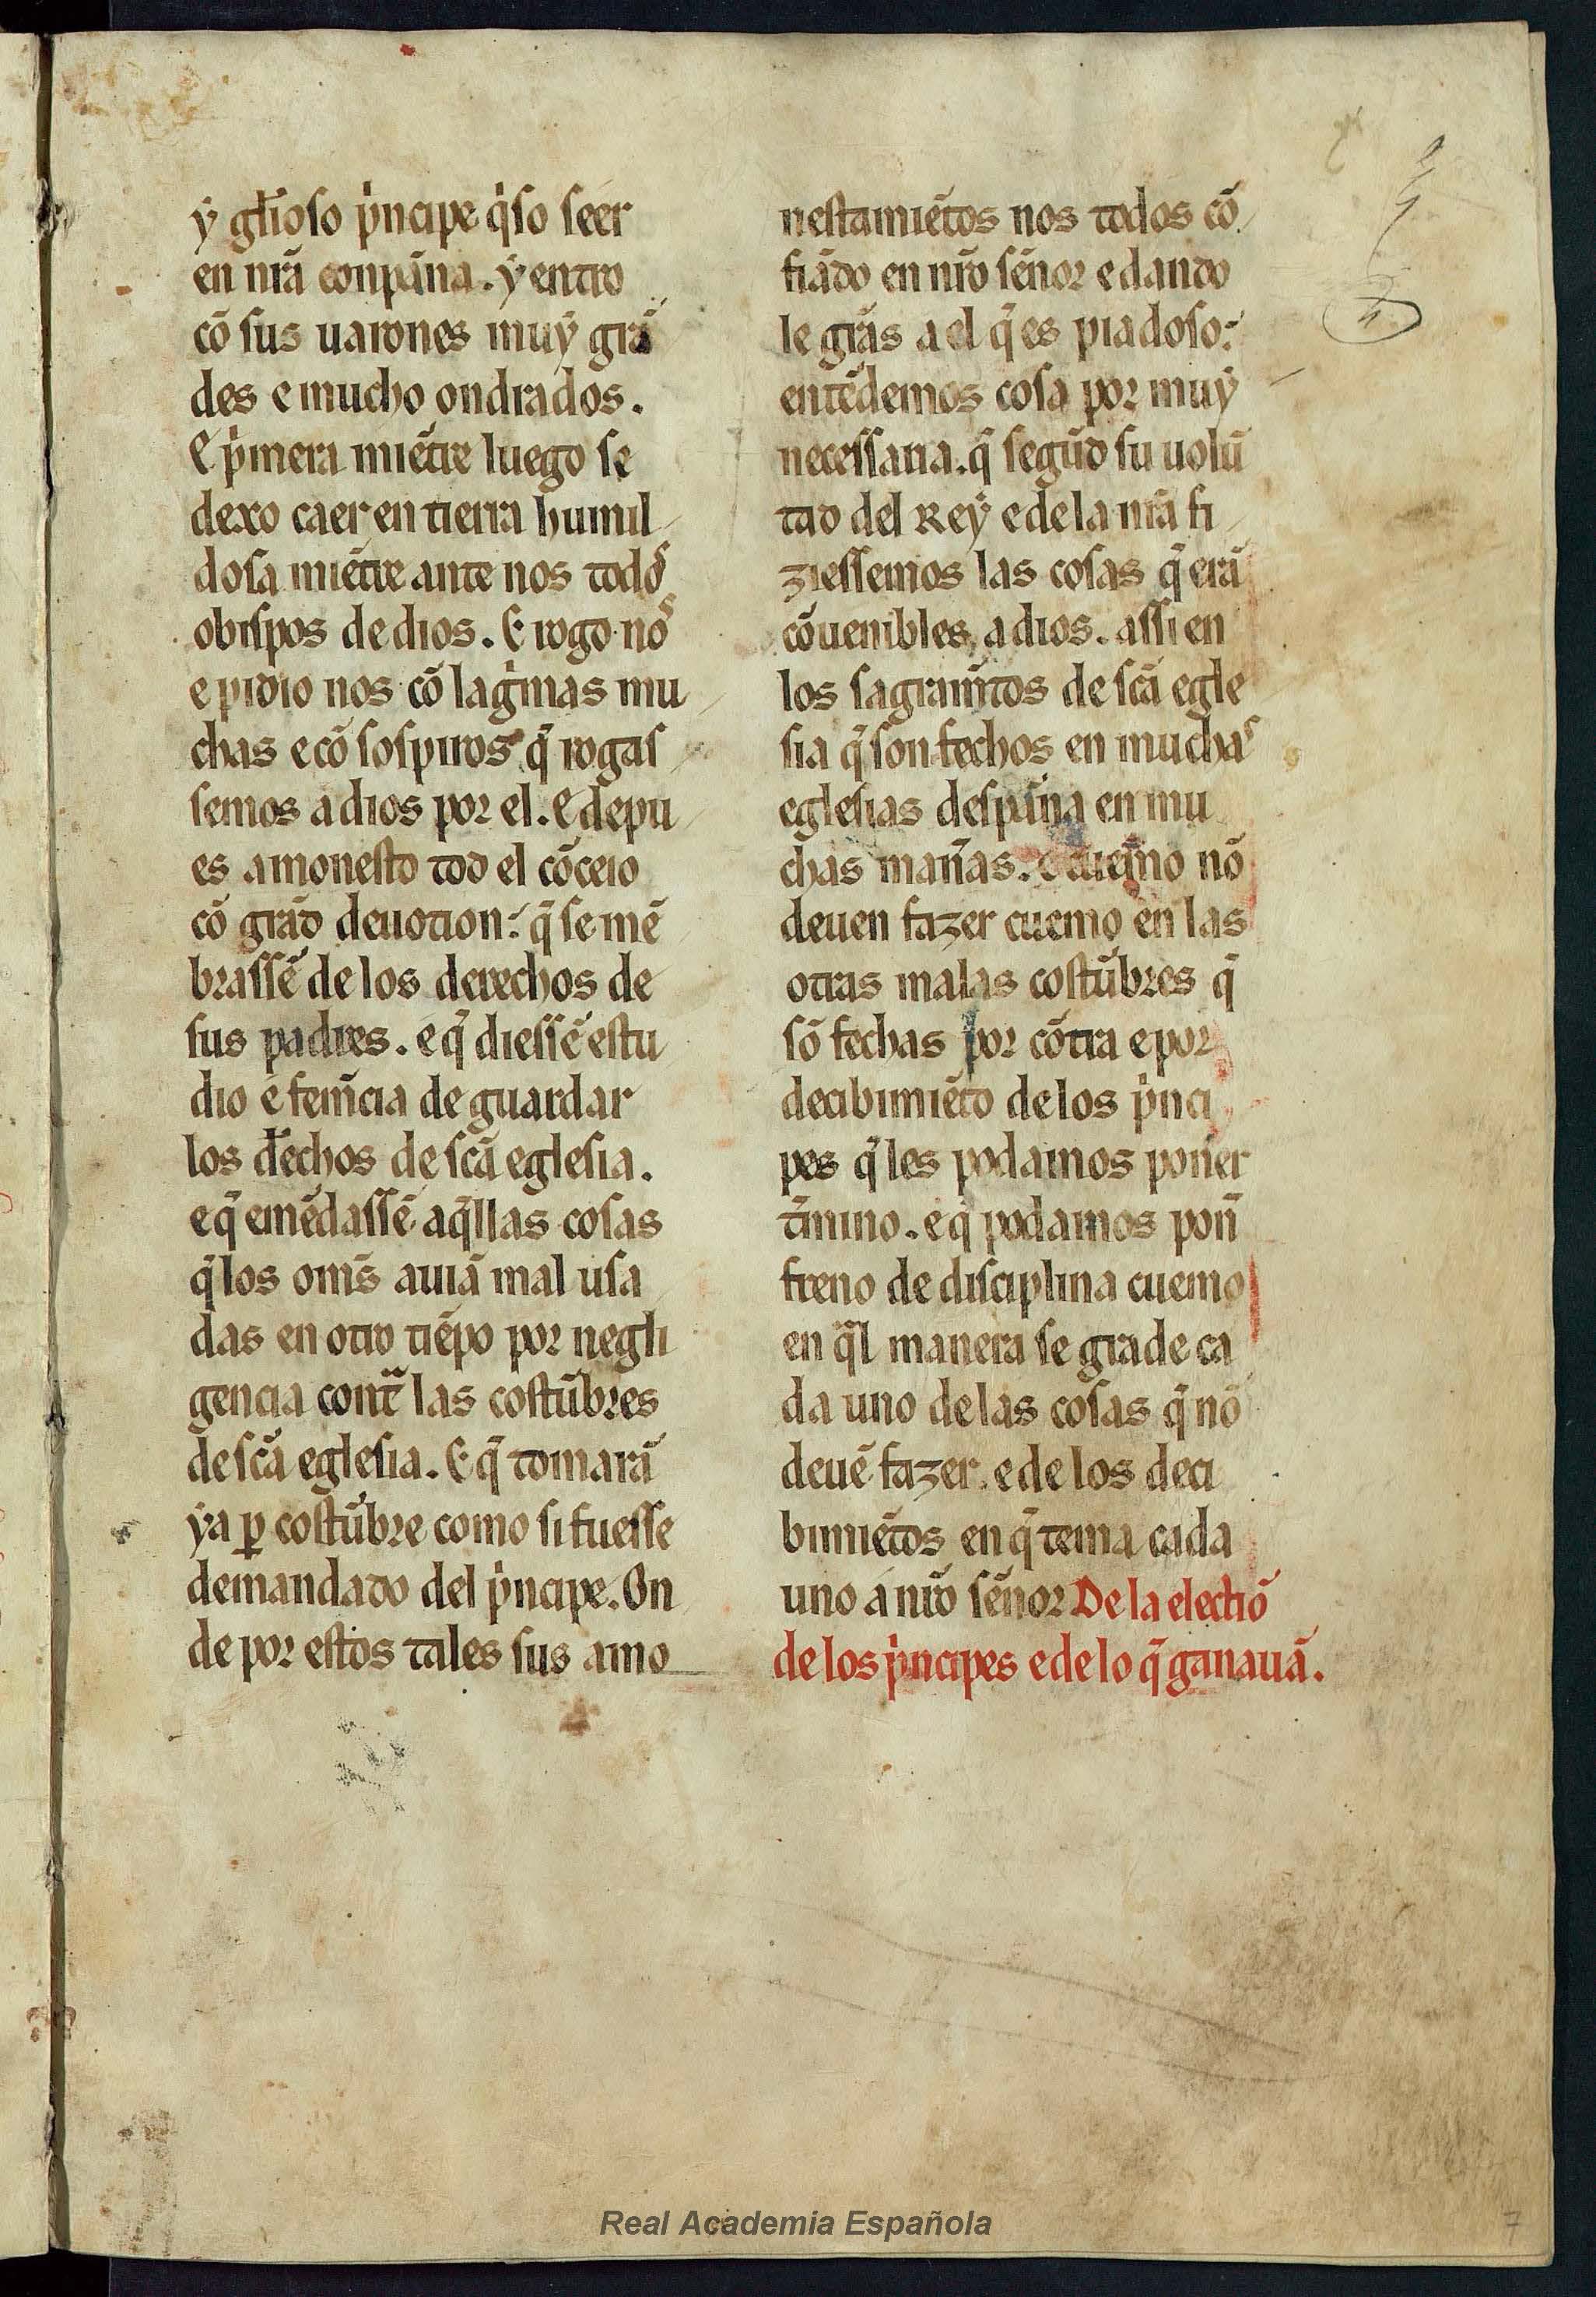 ẏ głioso pͥncipe qͥso seer
en nrã conpãna. ẏ entro
cõ sus uarones muẏ grã
des e mucho ondrados.
E pͥmera miẽtre luego se
dexo caer en tierra humil
dosa miẽtre ante nos todoˢ
obispos de dios. E rogo noˢ
e pidio nos cõ lagͥmas mu
chas e cõ sospiros q̃ rogas
semos a dios por el. E depu
es amonesto tod el cõceio
cõ grãd deuotion: q̃ se mẽ
brassẽ de los derechos de
sus padres. e q̃ diessẽ estu
dio e femẽcia de guardar
los dẽchos de scã eglesia.
e q̃ emẽdassẽ aq̃llas cosas
q̃ los oms̃ auiã mal usa
das en otro tiẽpo por negli
gencia contᵃ las costũbres
de scã eglesia. E q̃ tomarã
ẏa ꝑ costũbre como si fuesse
demandado del pͥncipe. On
de por estos tales sus amo
nestamiẽtos nos todos cõ
fiãdo en nrõ sẽnor e dando
le grãs a el q̃ es piadoso:
entẽdemos cosa por muẏ
necessaria. q̃ segũd su uolũ
tad del Reẏ e de la nrã fi
ziessemos las cosas q̃ erã
cõuenibles a dios. assi en
los sagramt̃os de scã egle
sia q̃ son fechos en muchaˢ
eglesias despãna en mu
chas mañas. e cuemo nõ
deuen fazer cuemo en las
otras malas costũbres q̃
sõ fechas por cõtra e por
decibimiẽto de los pͥnci
pes q̃ les podamos poner
t̃mino. e q̃ podamos poñ
freno de disciplina cuemo
en qᵃl manera se grade ca
da uno de las cosas q̃ nõ
deuẽ fazer. e de los deci
bimiẽtos en q̃ tema cada
uno a nrõ sẽnor De la electiõ
de los pͥncipes e de lo q̃ ganauã.
Real Academia Española
7